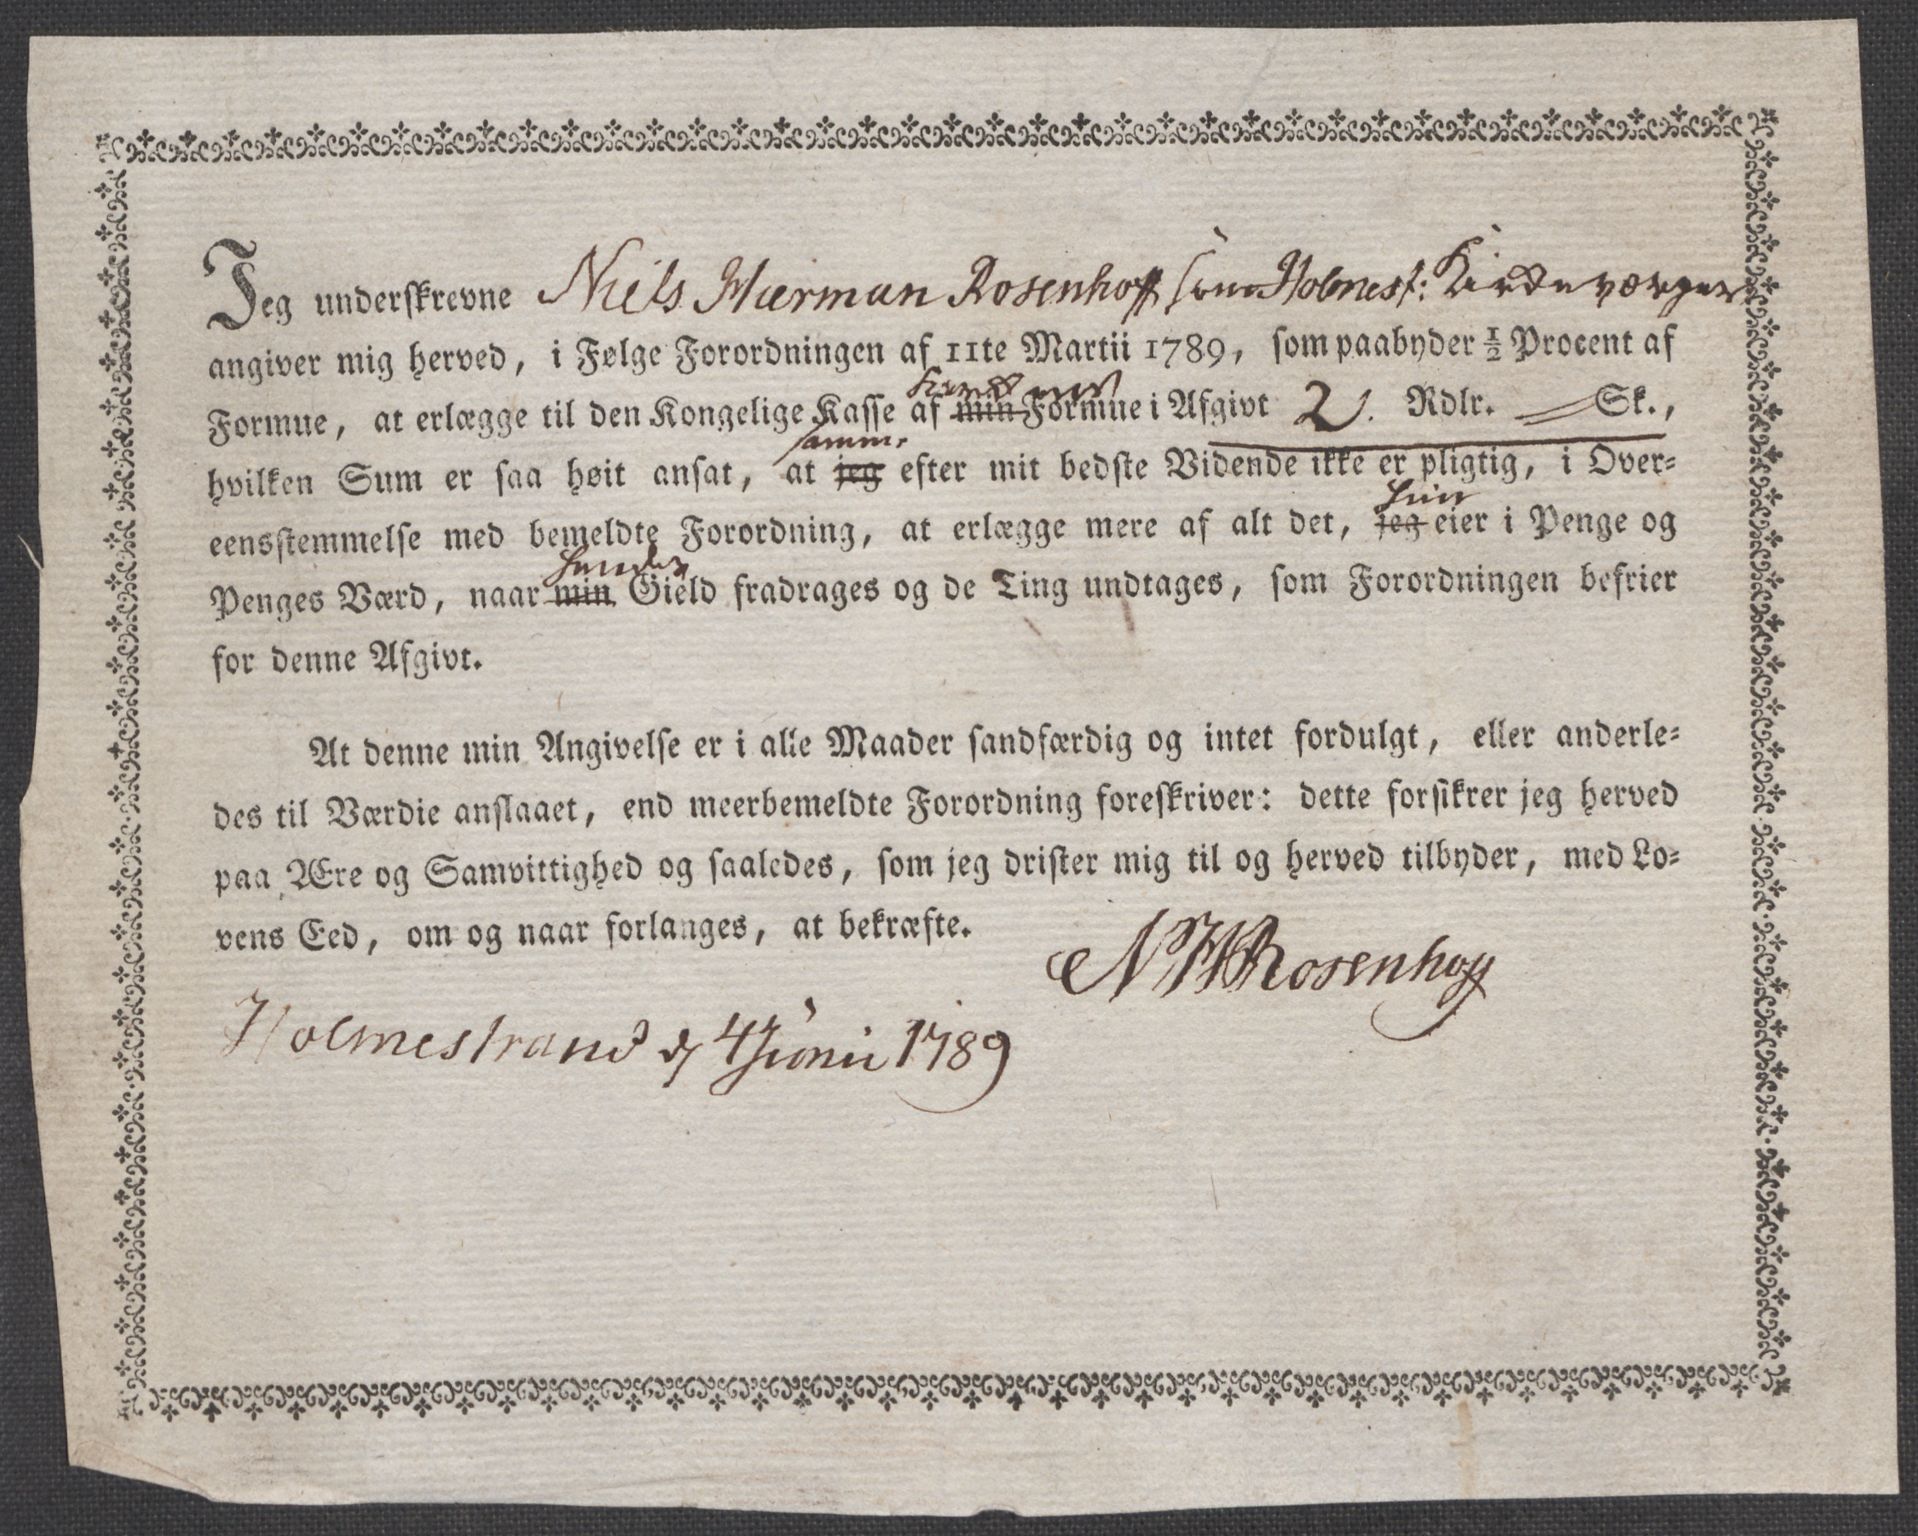 Jeg underskrevne Niels Herman Rosenhoff som Holmest: Kirkeværger
angiver mig herved, i Følge Forordningen af 11te Martii 1789, som paabyder ½ Procent af
Formue, at erlægge til den Kongelige Kasse af min Formue i Afgivt 2 Rdlr. — Sk.,
samme
hvilken Sum er saa høit ansat, at jeg efter mit bedste Vidende ikke er pligtig, i Over-
hun
eensstemmelse med bemeldte Forordning, at erlægge mere af alt det, jeg eier i Penge og
hendes
Penges Værd, naar min Gield fradrages og de Ting undtages, som Forordningen befrier
for denne Afgivt.
At denne min Angivelse er i alle Maader sandfærdig og intet fordulgt, eller anderle-
des til Værdie anslaaet, end meerbemeldte Forordning foreskriver: dette forsikrer jeg herved
paa Ære og Samvittighed og saaledes, som jeg drister mig til og herved tilbyder, med Lo-
vens Eed, om og naar forlanges, at bekræfte.
NHRosenhoff
Holmestrand d 4 Junii 1789